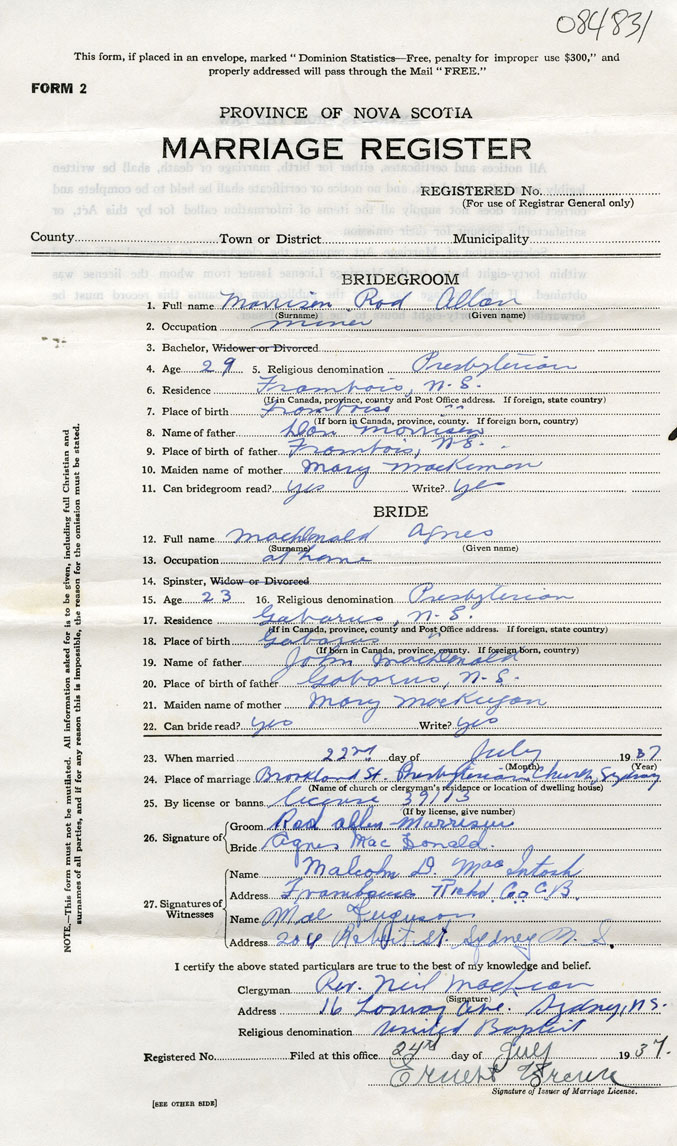 084831
This form, if placed in an envelope, marked "Dominion Statistics—Free, penalty for improper use $300," and
properly addressed will pass through the Mail "FREE."
FORM 2
PROVINCE OF NOVA SCOTIA
MARRIAGE REGISTER
REGISTERED No.
(For use of Registrar General only)
County Town or District Municipality
BRIDEGROOM
1. Full name Morrison Rod Allan
(Surname) (Given name)
2. Occupation miner
3. Bachelor, Widower or Divorced
4. Age 29 5. Religious denomination Presbyterian
6. Residence Frambois, N.S.
(If in Canada, province, county and Post Office address. If foreign, state country)
7. Place of birth Framboise " "
(If born in Canada, province, county. If foreign born, country)
8. Name of father Dan Morrison
9. Place of birth of father Frambois, N.S.
10. Maiden name of mother Mary MacKinnon
11. Can bridegroom read? yes Write? yes
BRIDE
12. Full name MacDonald Agnes
(Surname) (Given name)
13. Occupation at home
14. Spinster, Widow or Divorced
15. Age 23 16. Religious denomination Presbyterian
17. Residence Gabarus, N.S.
(If in Canada, province, county and Post Office address. If foreign, state country)
18. Place of birth Gabarus "
(If born in Canada, province, county. If foreign born, country)
19. Name of father John MacDonald
20. Place of birth of father Gabarus, N.S.
21. Maiden name of mother Mary
22. Can bride read? yes Write? yes
23. When married 22nd day of July 1937
(Month) (Year)
24. Place of marriage St. Presbyterian Church, Sydney
(Name of church or clergyman's residence or location of dwelling house)
25. By license or banns license 39113
(If by license, give number)
26. Signature of Groom Rod Allan Morrison
Bride Agnes MacDonald.
27. Signatures of Witnesses Name Malcolm D. MacIntosh
Address Framboise Richd Co. C.B.
Name Mae Ferguson
Address 204 St. Sydney N.S.
I certify the above stated particulars are true to the best of my knowledge and belief.
Clergyman Rev. Neil
(Signature)
Address 16 Ave. Sydney, N.S.
Religious denomination United Baptist
Registered No. Filed at this office 24th day of July 1937.
Ernest
Signature of Issuer of Marriage License.
[SEE OTHER SIDE]
NOTE.—This form must not be mutilated. All information asked for is to be given, including full Christian and
surnames of all parties, and if for any reason this is impossible, the reason for the omission must be stated.